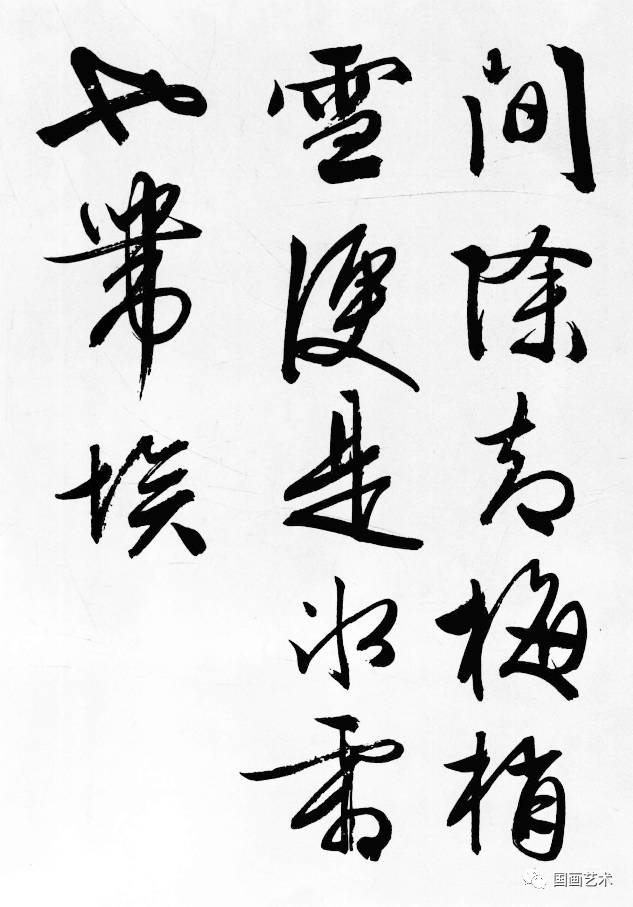 间除却梅梢
雪便是冰霜
也带埃
国画艺术